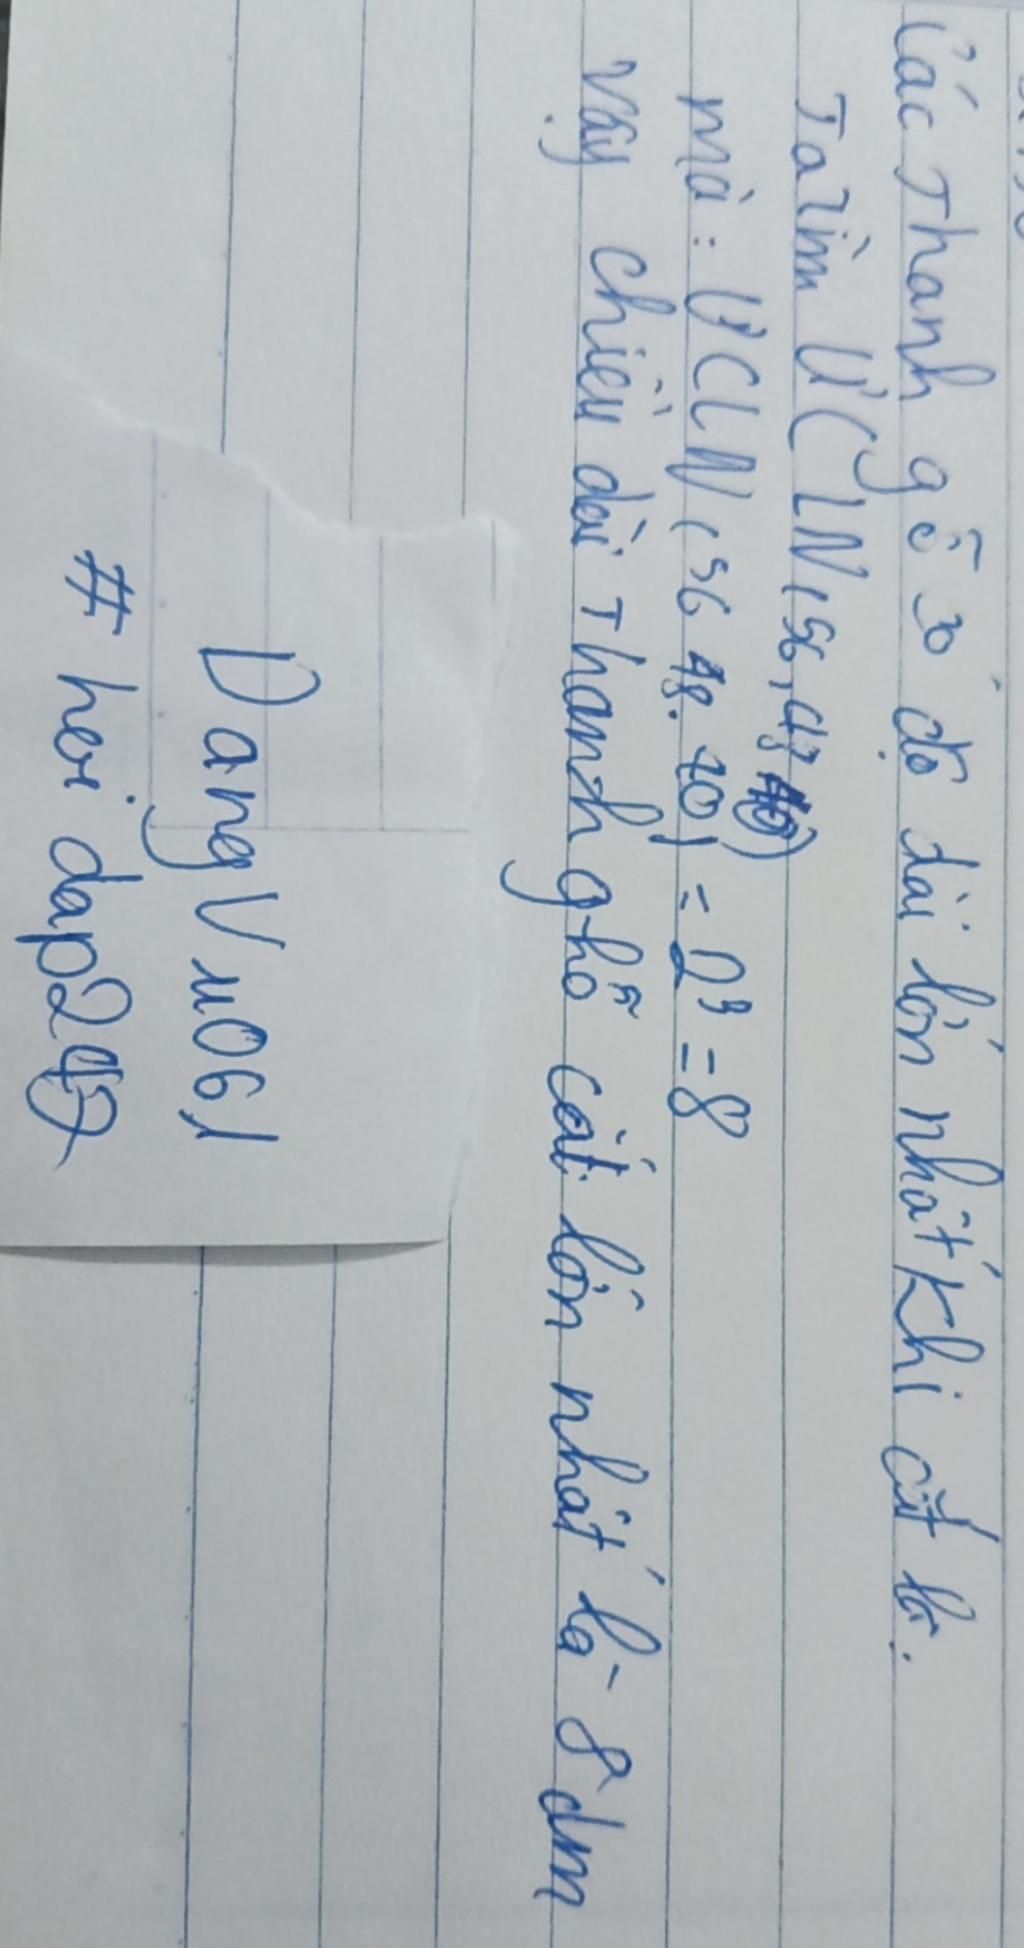 Các Thanh gỗ có độ dài lớn nhất khi cắt là:
Ta tìm ƯCLN (56, 48, 40)
mà: ƯCLN (56, 48, 40) = 2³ = 8
Vậy chiều dài Thanh ghỗ cắt lớn nhất là 8 dm
DangVu061
# hoi dap247